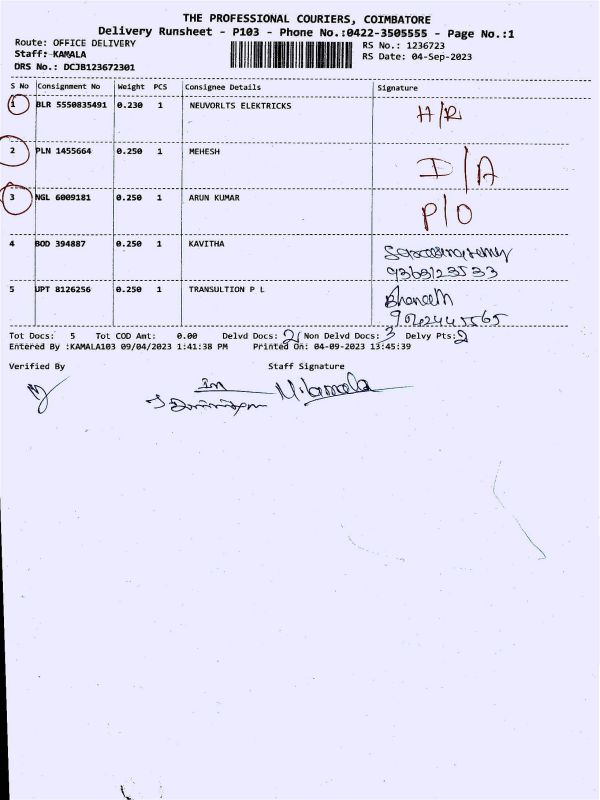 THE PROFESSIONAL COURIERS, COIMBATORE
Delivery Runsheet - P103 - Phone No.:0422-3505555 - Page No.:1
Route: OFFICE DELIVERY
RS No.: 1236723
Staff: KAMALA
RS Date: 04-Sep-2023
DRS No.: DCJB123672301
S No Consignment No Weight PCS Consignee Details Signature
1 BLR 5550835491 0.230 1 NEUVORLTS ELEKTRICKS H/R
2 PLN 1455664 0.250 1 MEHESH I/A
3 NGL 6009181 0.250 1 ARUN KUMAR P/O
4 BOD 394887 0.250 1 KAVITHA
5 UPT 8126256 0.250 1 TRANSULTION P L
Tot Docs: 5 Tot COD Amt: 0.00 Delvd Docs: 2 Non Delvd Docs: 3 Delvy Pts: 2
Entered By :KAMALA103 09/04/2023 1:41:38 PM Printed On: 04-09-2023 13:45:39
Verified By Staff Signature
M. Kamala